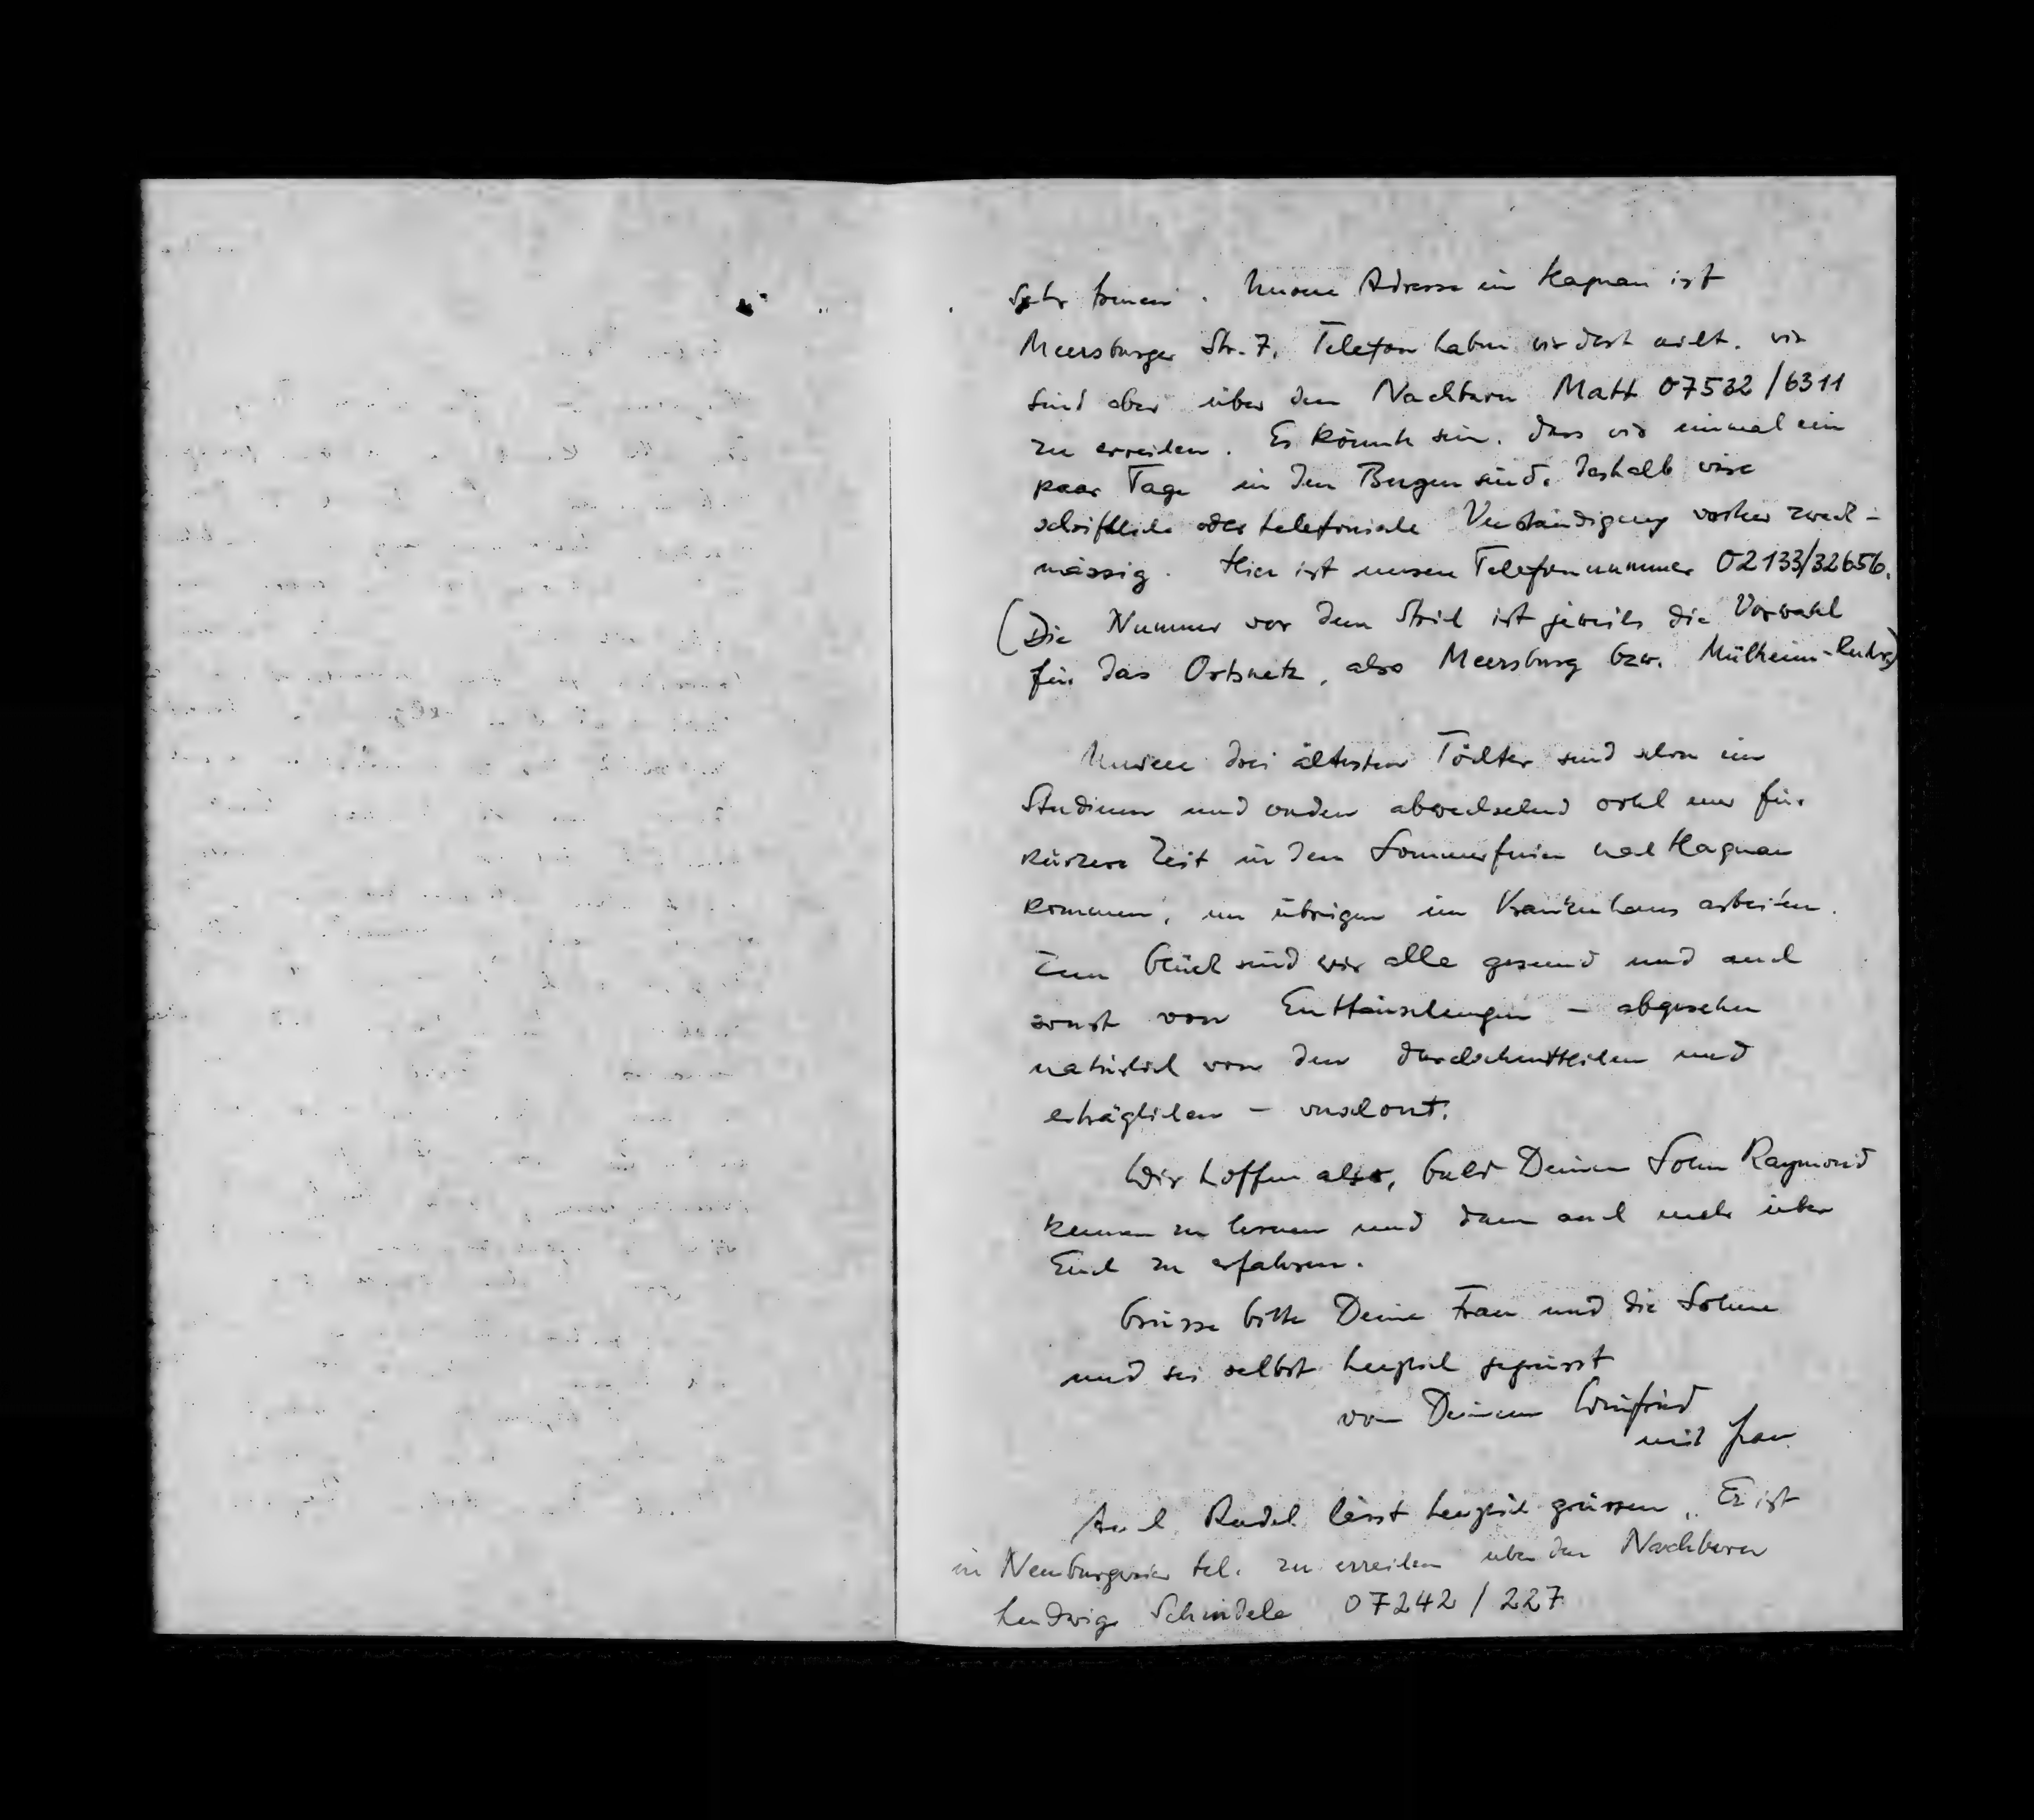 sehr freuen. Unsere Adresse in Hagnau ist
Meersburger Str. 7. Telefon haben wir dort nicht. wir
sind aber über den Nachbarn Matt 07532/6311
zu erreichen. Es könnte sein, dass wir einmal ein
paar Tage in den Bergen sind, deshalb wäre
schriftliche oder telefonische Verständigung vorher zweck-
mässig. Hier ist unsere Telefonnummer 02133/32656.
(Die Nummer vor dem Strich ist jeweils die Vorwahl
für das Ortsnetz, also Meersburg bzw. Mülheim-Ruhr)
Unsere drei ältesten Töchter sind schon im
Studium und werden abwechselnd wohl nur für
kürzere Zeit in den Sommerferien nach Hagnau
kommen, im übrigen im Krankenhaus arbeiten.
Zum Glück sind wir alle gesund und auch
sonst von Enttäuschungen – abgesehen
natürlich von den durchschnittlichen und
erträglichen – verschont.
Wir hoffen also, bald Deinen Sohn Raymond
kennen zu lernen und dann auch mehr über
Euch zu erfahren.
Grüsse bitte Deine Frau und die Söhne
und sei selbst herzlich gegrüsst
von Deinem Winfried
mit Frau
Auch Rudel lässt herzlich grüssen. Er ist
in Neuburgweier tel. zu erreichen über den Nachbarn
Ludwig Schindele 07242/227